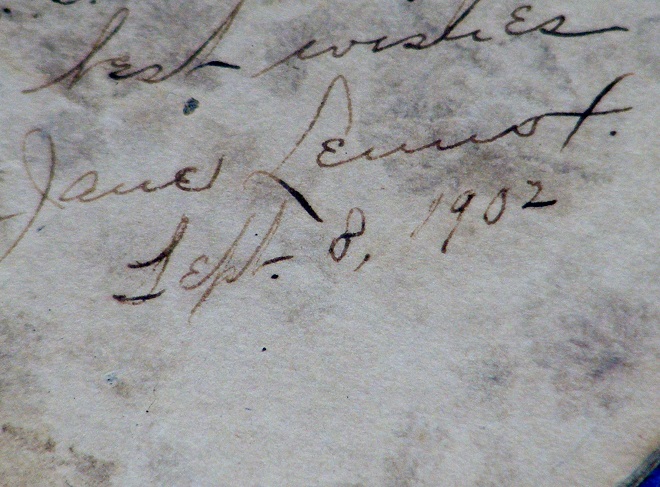 best wishes
Jane Lennox.
Sept. 8, 1902